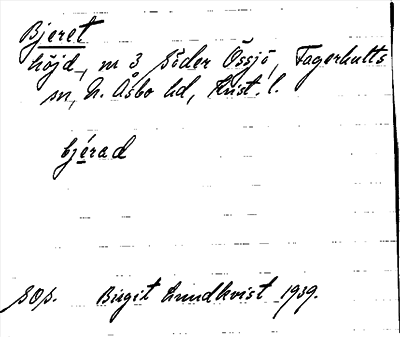 Bjeret
höjd, n 3 Söder Össjö, Fagerhults
sn, N. Åsbo hd, Krist. l.
bjérad
sop. Birgit Lundkvist 1939.